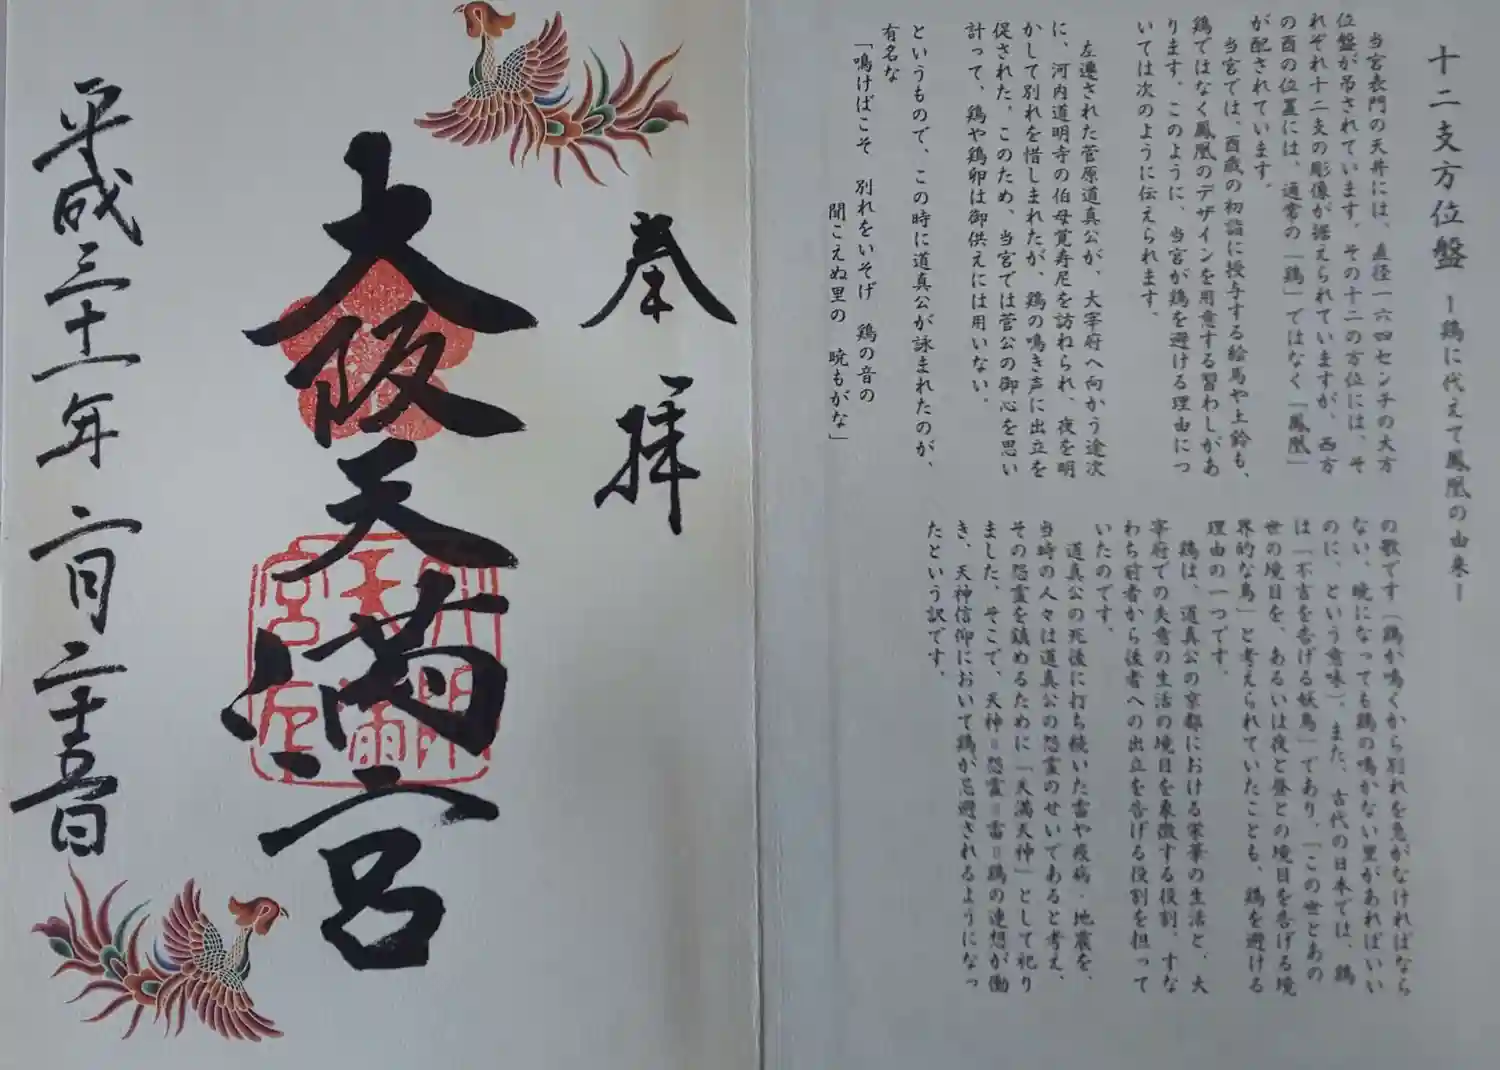 十二支方位盤 ー鶏に代えて鳳凰の由来ー
当宮表門の天井には、直径一六四センチの大方
位盤が吊されています。その十二の方位には、そ
れぞれ十二支の彫像が据えられていますが、西方
の酉の位置には、通常の「鶏」ではなく「鳳凰」
が配されています。
当宮では、酉歳の初詣に授与する絵馬や土鈴も、
鶏ではなく鳳凰のデザインを用意する習わしがあ
ります。このように、当宮が鶏を避ける理由につ
いては次のように伝えられます。
左遷された菅原道真公が、大宰府へ向かう途次
に、河内道明寺の伯母覚寿尼を訪ねられ、夜を明
かして別れを惜しまれたが、鶏の鳴き声に出立を
促された。このため、当宮では菅公の御心を思い
計って、鶏や鶏卵は御供えには用いない。
というもので、この時に道真公が詠まれたのが、
有名な
「鳴けばこそ 別れをいそげ 鶏の音の
聞こえぬ里の 暁もがな」
の歌です（鶏が鳴くから別れを急がなければなら
ない、暁になっても鶏の鳴かない里があればいい
のに、という意味）。また、古代の日本では、鶏
は「不吉を告げる妖鳥」であり、「この世とあの
世の境目を、あるいは夜と昼との境目を告げる境
界的な鳥」と考えられていたことも、鶏を避ける
理由の一つです。
鶏は、道真公の京都における栄華の生活と、大
宰府での失意の生活の境目を象徴する役割、すな
わち前者から後者への出立を告げる役割を担って
いたのです。
道真公の死後に打ち続いた雷や疫病・地震を、
当時の人々は道真公の怨霊のせいであると考え、
その怨霊を鎮めるために「天満天神」として祀り
ました。そこで、天神＝怨霊＝雷＝鶏の連想が働
き、天神信仰において鶏が忌避されるようになっ
たという訳です。
奉拝
大阪天満宮
平成三十一年二月二十五日